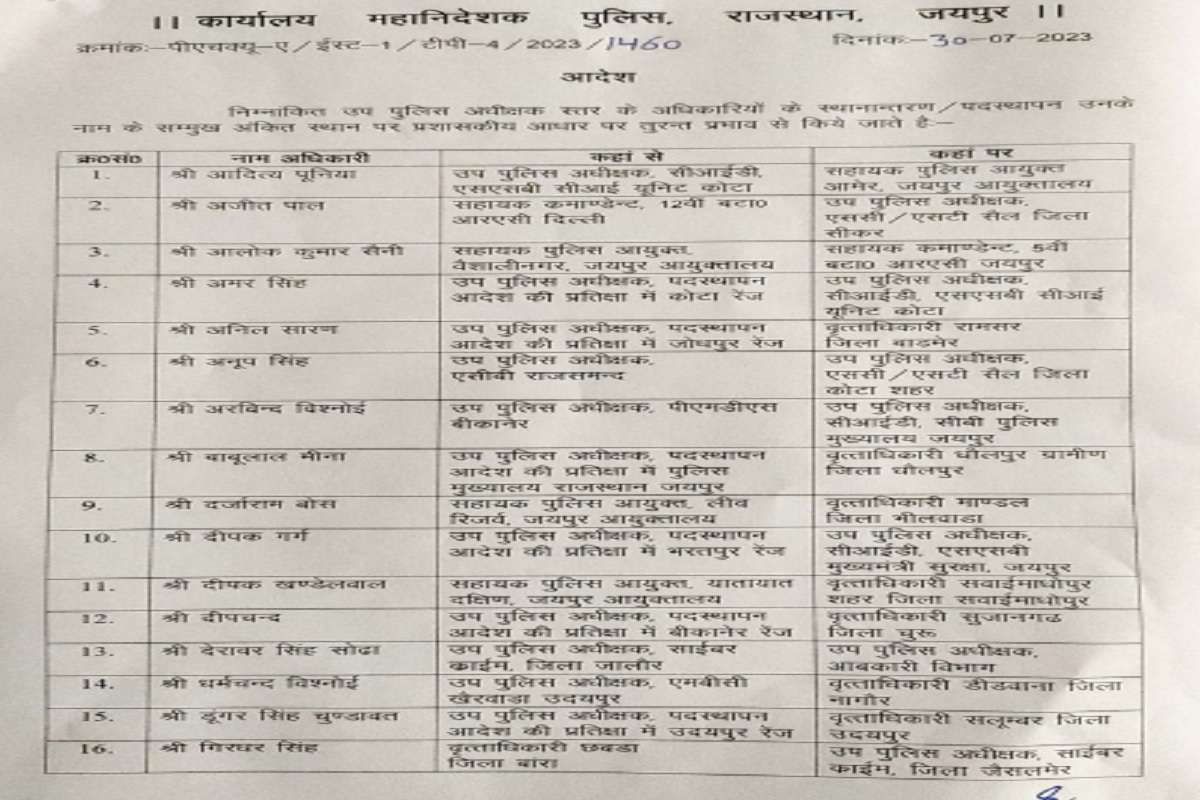 ।। कार्यालय महानिदेशक पुलिस, राजस्थान, जयपुर ।।
क्रमांकः–पीएचक्यू–ए/ईस्ट–1/टीपी–4/2023/1460 दिनांकः–30–07–2023
आदेश
निम्नांकित उप पुलिस अधीक्षक स्तर के अधिकारियों के स्थानान्तरण/पदस्थापन उनके
नाम के सम्मुख अंकित स्थान पर प्रशासकीय आधार पर तुरन्त प्रभाव से किये जाते हैः–
क्र0सं0 नाम अधिकारी कहां से कहां पर
1. श्री आदित्य पूनिया उप पुलिस अधीक्षक, सीआईडी, सहायक पुलिस आयुक्त
एसएसबी सीआई यूनिट कोटा आमेर, जयपुर आयुक्तालय
2. श्री अजीत पाल सहायक कमाण्डेन्ट, 12वी बटा0 उप पुलिस अधीक्षक,
आरएसी दिल्ली एससी/एसटी सैल जिला
सीकर
3. श्री आलोक कुमार सैनी सहायक पुलिस आयुक्त, सहायक कमाण्डेन्ट, 5वी
वैशालीनगर, जयपुर आयुक्तालय बटा0 आरएसी जयपुर
4. श्री अमर सिंह उप पुलिस अधीक्षक, पदस्थापन उप पुलिस अधीक्षक,
आदेश की प्रतिक्षा में कोटा रेंज सीआईडी, एसएसबी सीआई
यूनिट कोटा
5. श्री अनिल सारण उप पुलिस अधीक्षक, पदस्थापन वृत्ताधिकारी रामसर
आदेश की प्रतिक्षा में जोधपुर रेंज जिला बाडमेर
6. श्री अनूप सिंह उप पुलिस अधीक्षक, उप पुलिस अधीक्षक,
एसीबी राजसमन्द एससी/एसटी सैल जिला
कोटा शहर
7. श्री अरविन्द विश्नोई उप पुलिस अधीक्षक, पीएमडीएस उप पुलिस अधीक्षक,
बीकानेर सीआईडी, सीबी पुलिस
मुख्यालय जयपुर
8. श्री बाबूलाल मीना उप पुलिस अधीक्षक, पदस्थापन वृत्ताधिकारी धौलपुर ग्रामीण
आदेश की प्रतिक्षा में पुलिस जिला धौलपुर
मुख्यालय राजस्थान जयपुर
9. श्री दर्जाराम बोस सहायक पुलिस आयुक्त, लीव वृत्ताधिकारी माण्डल
रिजर्व, जयपुर आयुक्तालय जिला भीलवाडा
10. श्री दीपक गर्ग उप पुलिस अधीक्षक, पदस्थापन उप पुलिस अधीक्षक,
आदेश की प्रतिक्षा में भरतपुर रेंज सीआईडी, एसएसबी
मुख्यमंत्री सुरक्षा, जयपुर
11. श्री दीपक खण्डेलवाल सहायक पुलिस आयुक्त, यातायात वृत्ताधिकारी सवाईमाधोपुर
दक्षिण, जयपुर आयुक्तालय शहर जिला सवाईमाधोपुर
12. श्री दीपचन्द उप पुलिस अधीक्षक, पदस्थापन वृत्ताधिकारी सुजानगढ
आदेश की प्रतिक्षा में बीकानेर रेंज जिला चुरू
13. श्री देरावर सिंह सोढा उप पुलिस अधीक्षक, साईबर उप पुलिस अधीक्षक,
काईम, जिला जालौर आबकारी विभाग
14. श्री धर्मचन्द विश्नोई उप पुलिस अधीक्षक, एमबीसी वृत्ताधिकारी डीडवाना जिला
खैरवाडा उदयपुर नागौर
15. श्री डूंगर सिंह चुण्डावत उप पुलिस अधीक्षक, पदस्थापन वृत्ताधिकारी सलूम्बर जिला
आदेश की प्रतिक्षा में उदयपुर रेंज उदयपुर
16. श्री गिरधर सिंह वृत्ताधिकारी छबडा उप पुलिस अधीक्षक, साईबर
जिला बांरा काईम, जिला जैसलमेर